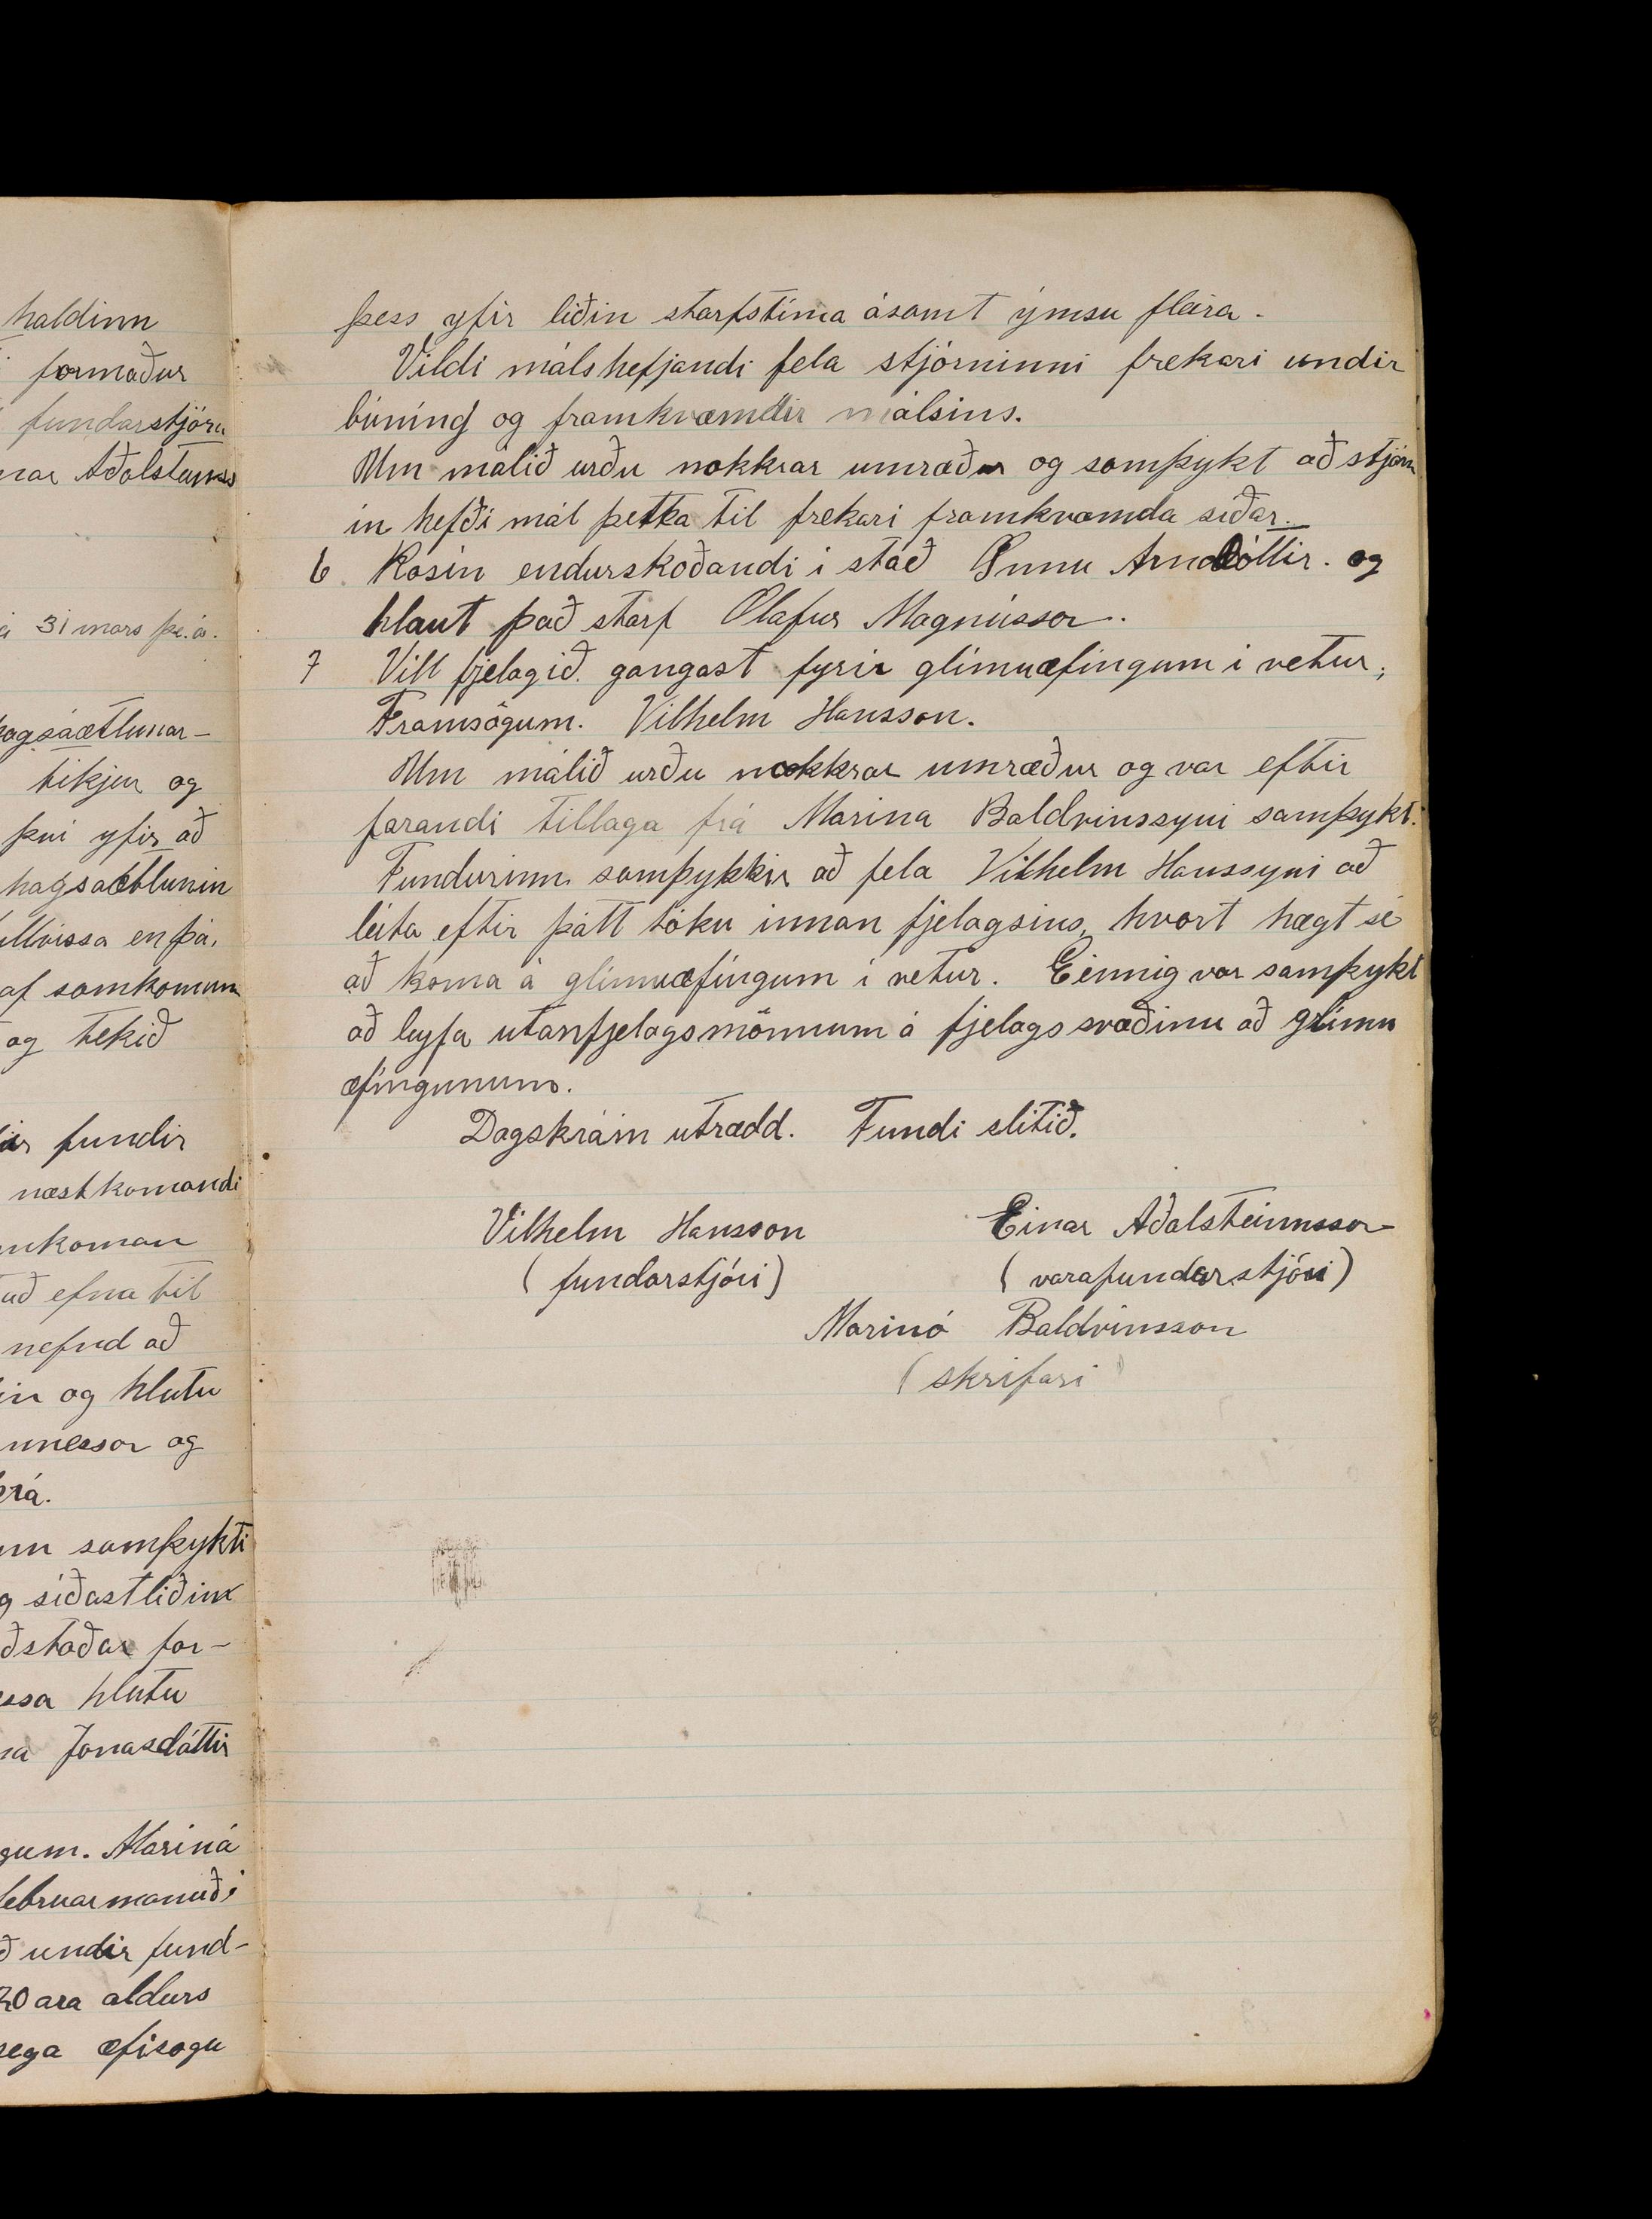 haldinn
formaður
fundarstjóra
nar Aðalsteinss
á 31 mars þe.á.
hagsáætlunar-
tikjur og
því yfir að
hagsáætlunin
ullvissa en þá,
af samkomum
og tekið
fundir
næstkomandi
mkoman
að efna til
nefnd að
in og hlutu
unesson og
krá.
nn samþykti
g síðastliðinn
ðstaðar for-
essa hlutu
na Jonasdóttir
gum. Marinó
februarmanuði
ð undir fund-
20 ara aldurs
sega æfisogu
þess yfir liðin starfstíma ásamt ýmsu fleira.
Vildi málshefjandi fela stjórninni frekari undir
búning og framkvæmdir málsins.
Um málið urðu nokkrar umræður og samþykt að stjórn
in hefði mál þetta til frekari framkvæmda síðar.
6. Kosin endurskoðandi í stað Önnu Arnadóttir. og
hlaut það starf Olafur Magnússon.
7 Vill fjelagið gangast fyrir glímuæfingum í vetur;
Framsögum. Vilhelm Hansson.
Um málið urðu nokkrar umræður og var eftir
farandi tillaga frá Marinó Baldvinssyni samþykt:
Fundurinn samþykkir að fela Vilhelm Hanssyni að
leita eftir þátt töku innan fjelagsins, hvort hægt sé
að koma á glímuæfingum í vetur. Einnig var samþykt
að leyfa utanfjelagsmönnum á fjelagssvæðinu að glímu
æfingunum.
Dagskráin utrædd. Fundi slitið.
Vilhelm Hansson Einar Aðalsteinnsson
(fundarstjóri) (varafundarstjóri)
Marinó Baldvinsson
(skrifari)